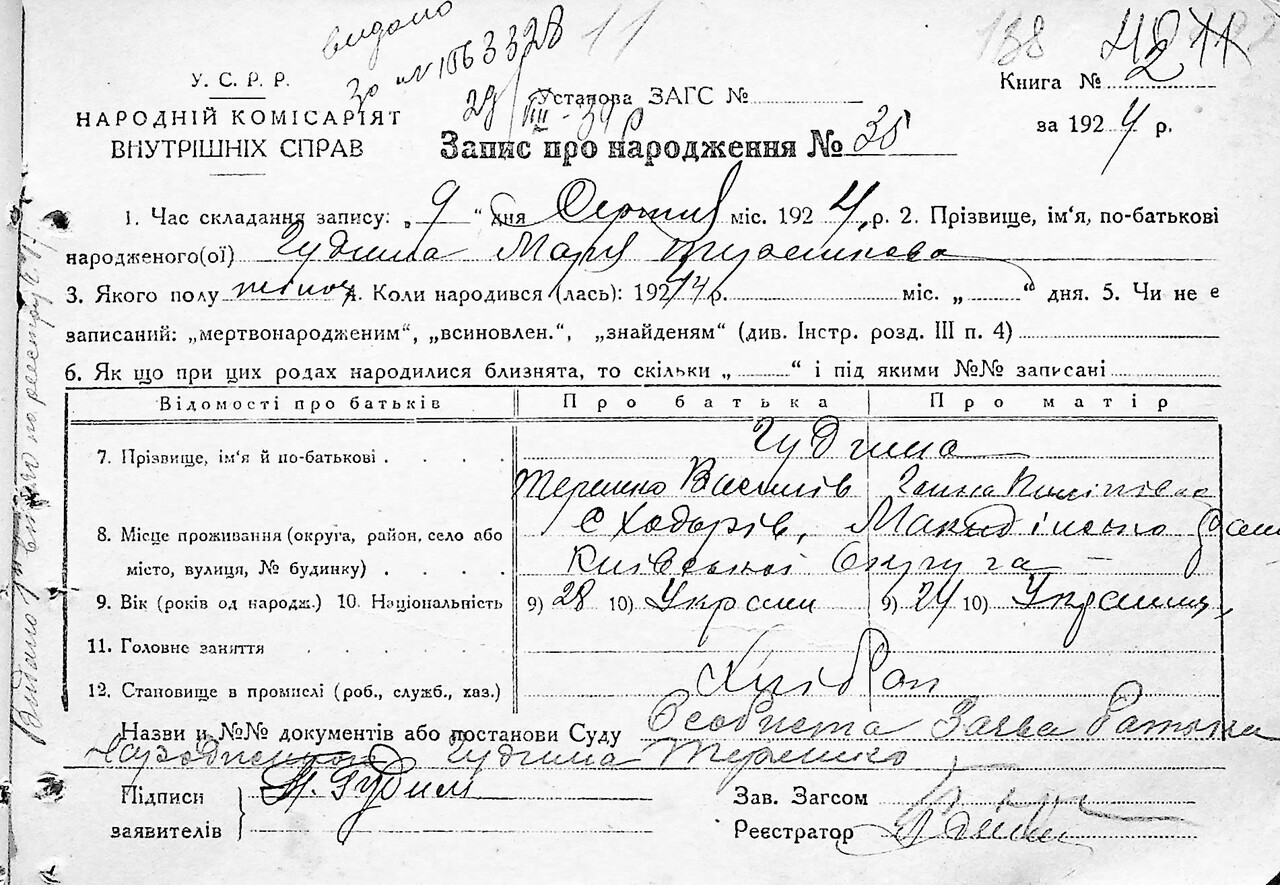 видано
за № 1063328
29/VIII-39 р
11
138
У. С. Р. Р.
НАРОДНІЙ КОМІСАРІЯТ
ВНУТРІШНІХ СПРАВ
Установа ЗАГС №
Книга № 2
за 1924 р.
Запис про народження № 35
1. Час складання запису: „ 9 “ дня Серпня міс. 1924, р. 2. Прізвище, ім'я, по-батькові
народженого(ої) Гудима Марія Терешкова
3. Якого полу жіноч 4. Коли народився (лась): 1924 р. міс. „ “ дня. 5. Чи не є
записаний: „мертвонародженим“, „всиновлен.“, „знайденям“ (див. Інстр. розд. III п. 4)
6. Як що при цих родах народилися близнята, то скільки „ “ і під якими №№ записані
Відомості про батьків Про батька Про матір
7. Прізвище, ім'я й по-батькові . . . . Гудима
Терешко Василів Ганна Пилипівна
8. Місце проживання (округа, район, село або с Ходорів, Макидінсько
місто, вулиця, № будинку) . . . . Київської Округа
9. Вік (років од народж.) 10. Національність 9) 28 10) Украин 9) 24 10) Украинц,
11. Головне заняття . . . . .
12. Становище в промислі (роб., служб., хаз.) Хліброп
Назви и №№ документів або постанови Суду Особиста Заява Батька
Гудима Терешко
Підписи Т. Гудим
заявителів
Зав. Загсом
Реєстратор
Видано